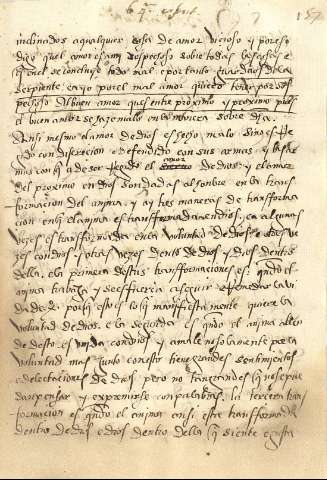 inclinados aqualquier cosa de amor vicioso y por eso
digo quel amor es muy sospechoso sobre todas las cosas e
que en el se concluye todo mal e por tanto guardaos dela
serpiente cayo por el mal amor quiero tener por sos
pechoso al buen amor ques entre proximo y proximo pues
el buen amor se
Ansi mesmo el amor de dios es hecho malo sino es
do con discrecion e defendido con sus armas y las ar
mas con que a de ser regido el amor de dios y el amor
del proximo en dios son dadas al onbre en la trans
formacion del anima y ay tres maneras de transforma
cion en que el anima es transformada en dios en algunas
vezes es transformada en la voluntad de dios e otras ve
zes con dios y otras vezes dentro de dios y dios dentro
della e la primera destas transformaciones es quando el
anima trabaja y se esfuerza a seguir la vi
da de porque eso es lo que manifiestamente quiere la
voluntad de dios e la segunda es quando el anima allen
de desto es unida con dios y ama le no solamente por la
voluntad mas junto con esto tiene grandes sentimientos
e delectaciones de dios pero no tan grandes que no se pue
dan pensar y exprimirse con palabras la tercera trans
formacion es quando el anima ansi esta transformada
dentro de dios e dios dentro della que siente e gusta